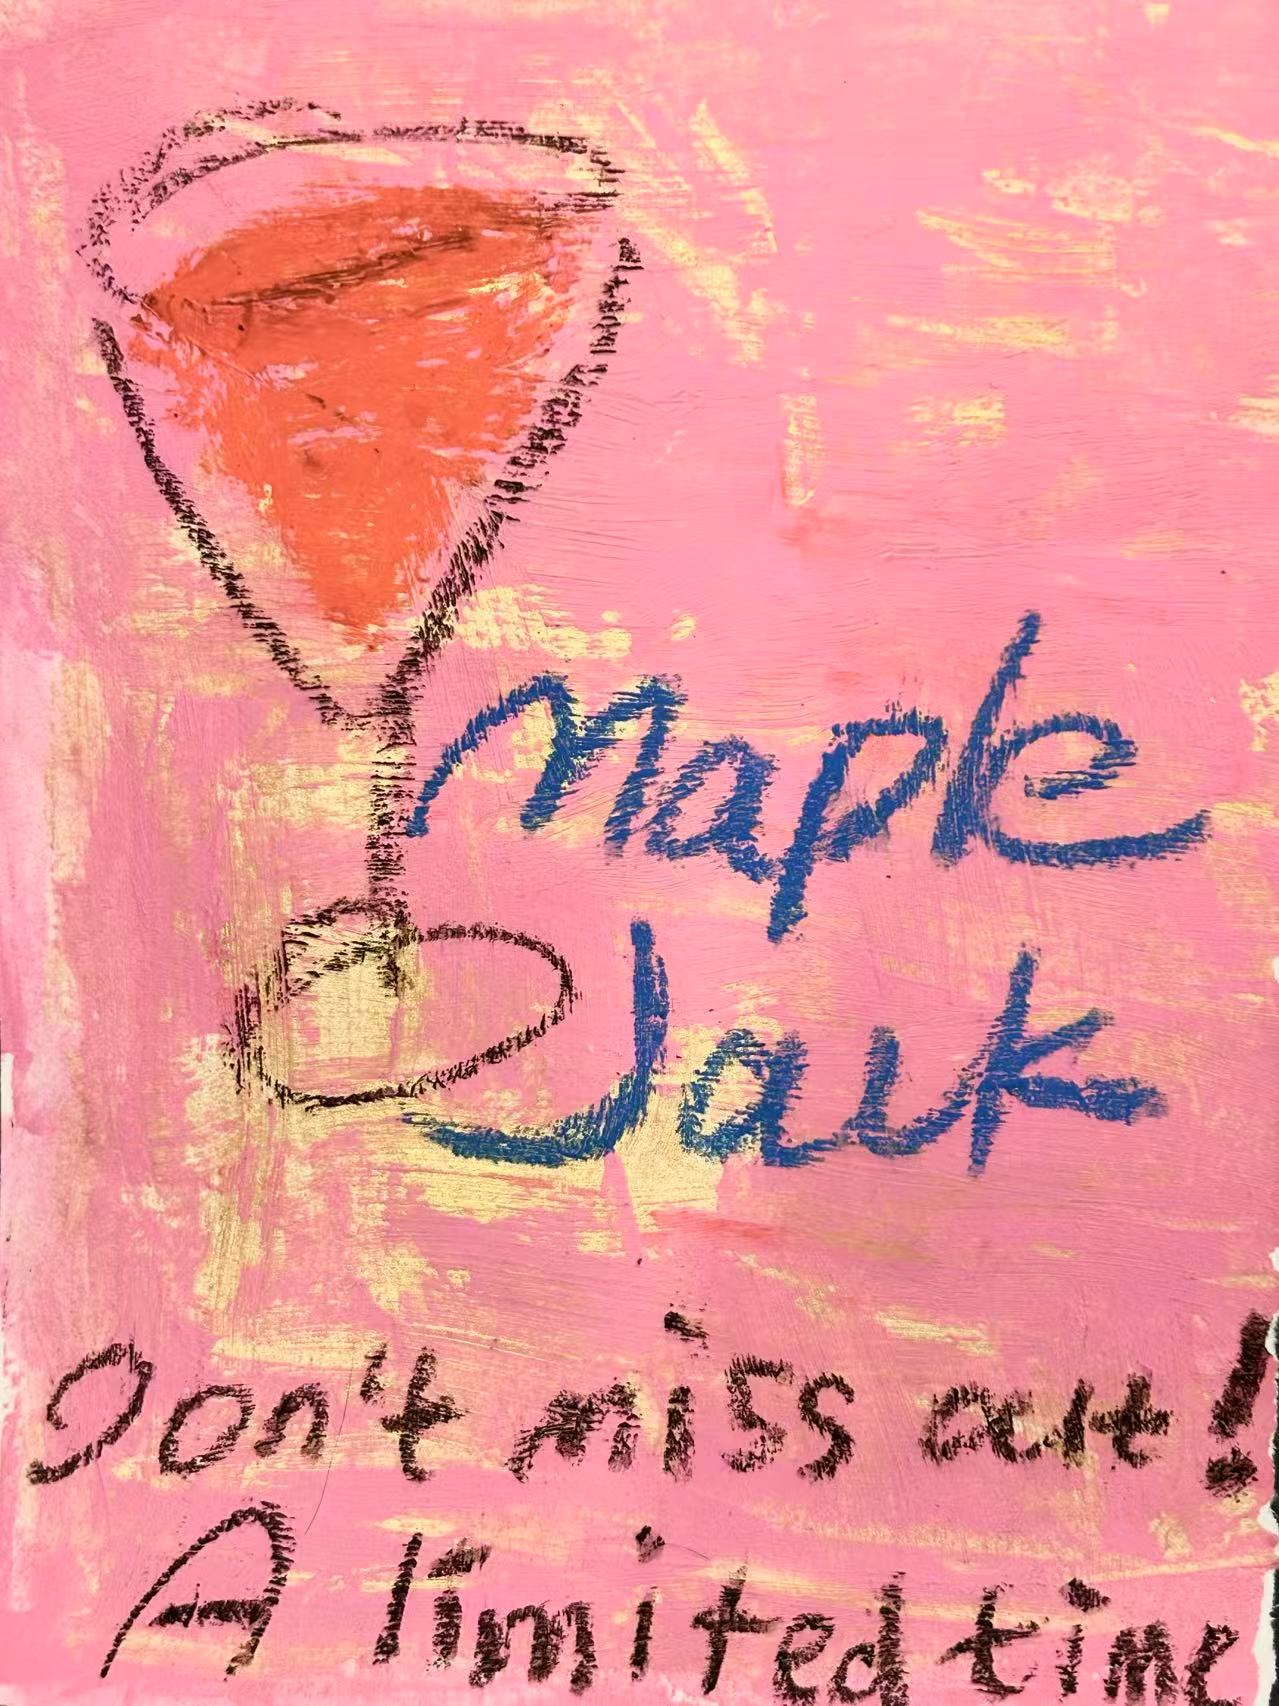 Maple
Jack
Don't miss out!
A limited time